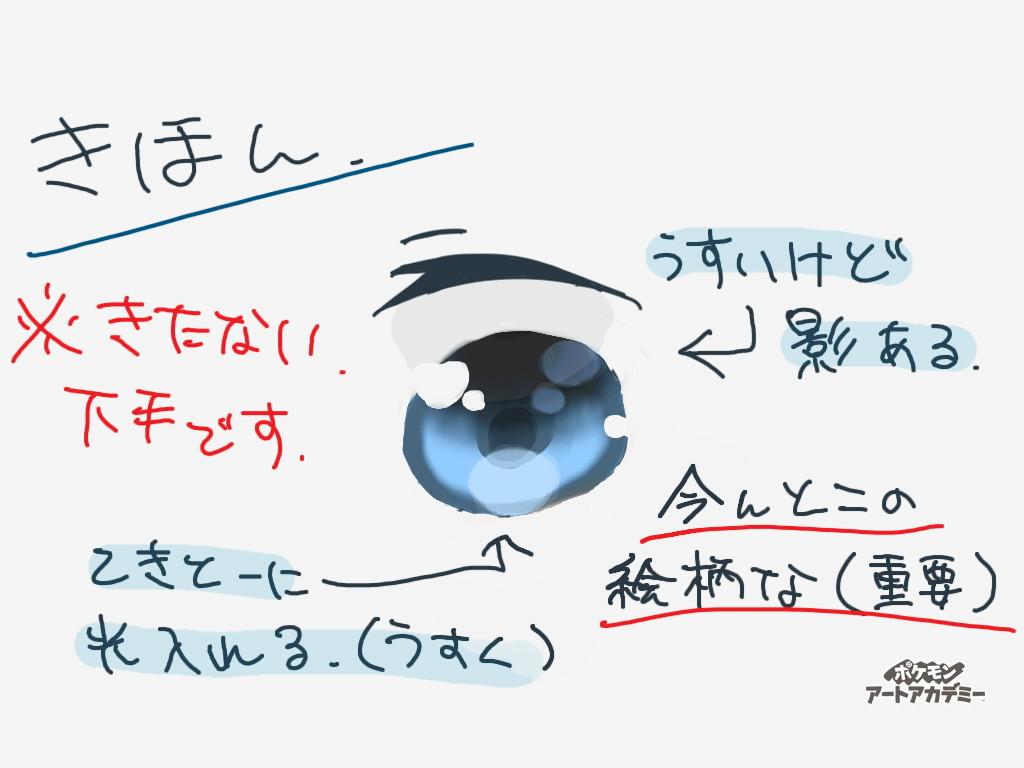 きほん.
※きたない.
下手です.
うすいけど
影ある.
てきとーに
光入れる.(うすく)
今んとこの
絵柄な(重要)
ポケモン
アートアカデミー